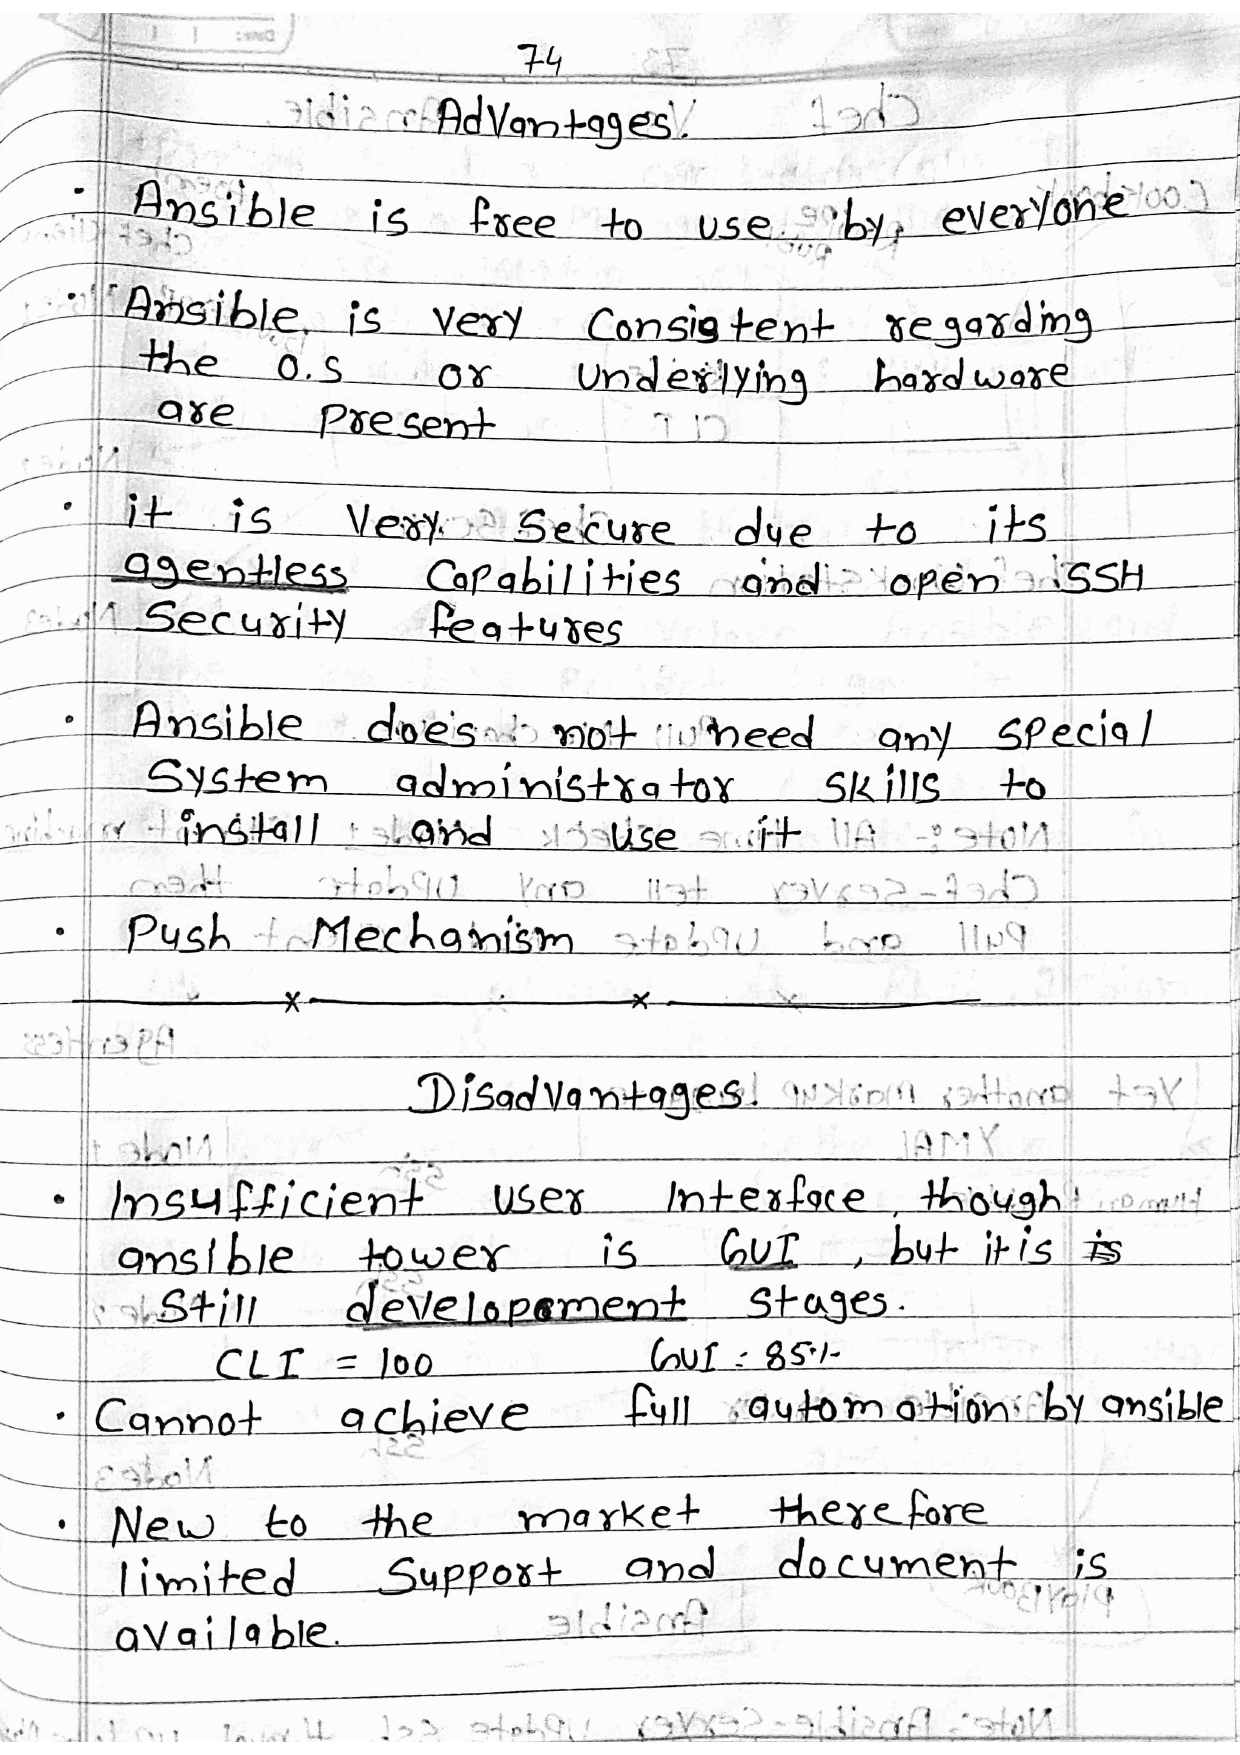 74
Advantages.
· Ansible is free to use by everyone
· Ansible is very Consistent regarding
the O.S or underlying hardware
are present
· it is Very Secure due to its
agentless Capabilities and open SSH
Security features
· Ansible does not need any special
System administrator skills to
install and use it
· Push Mechanism
Disadvantages.
· Insufficient user Interface, though
ansible tower is GUI, but it is is
Still developement stages.
CLI = 100 GUI = 85%
· Cannot achieve full automation by ansible
· New to the market therefore
limited Support and document is
available.